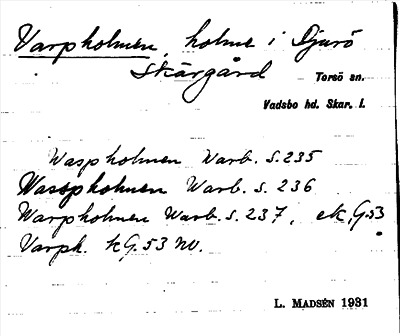 Varpholmen, holme i Djurö
Skärgård Torsö sn.
Vadsbo hd. Skar. l.
Waspholmen Warb. s. 235
Wasspholmen Warb. s. 236
Warpholmen Warb. s. 237, ek, G.53
Varph. kG.53 NV.
L. MADSÉN 1931